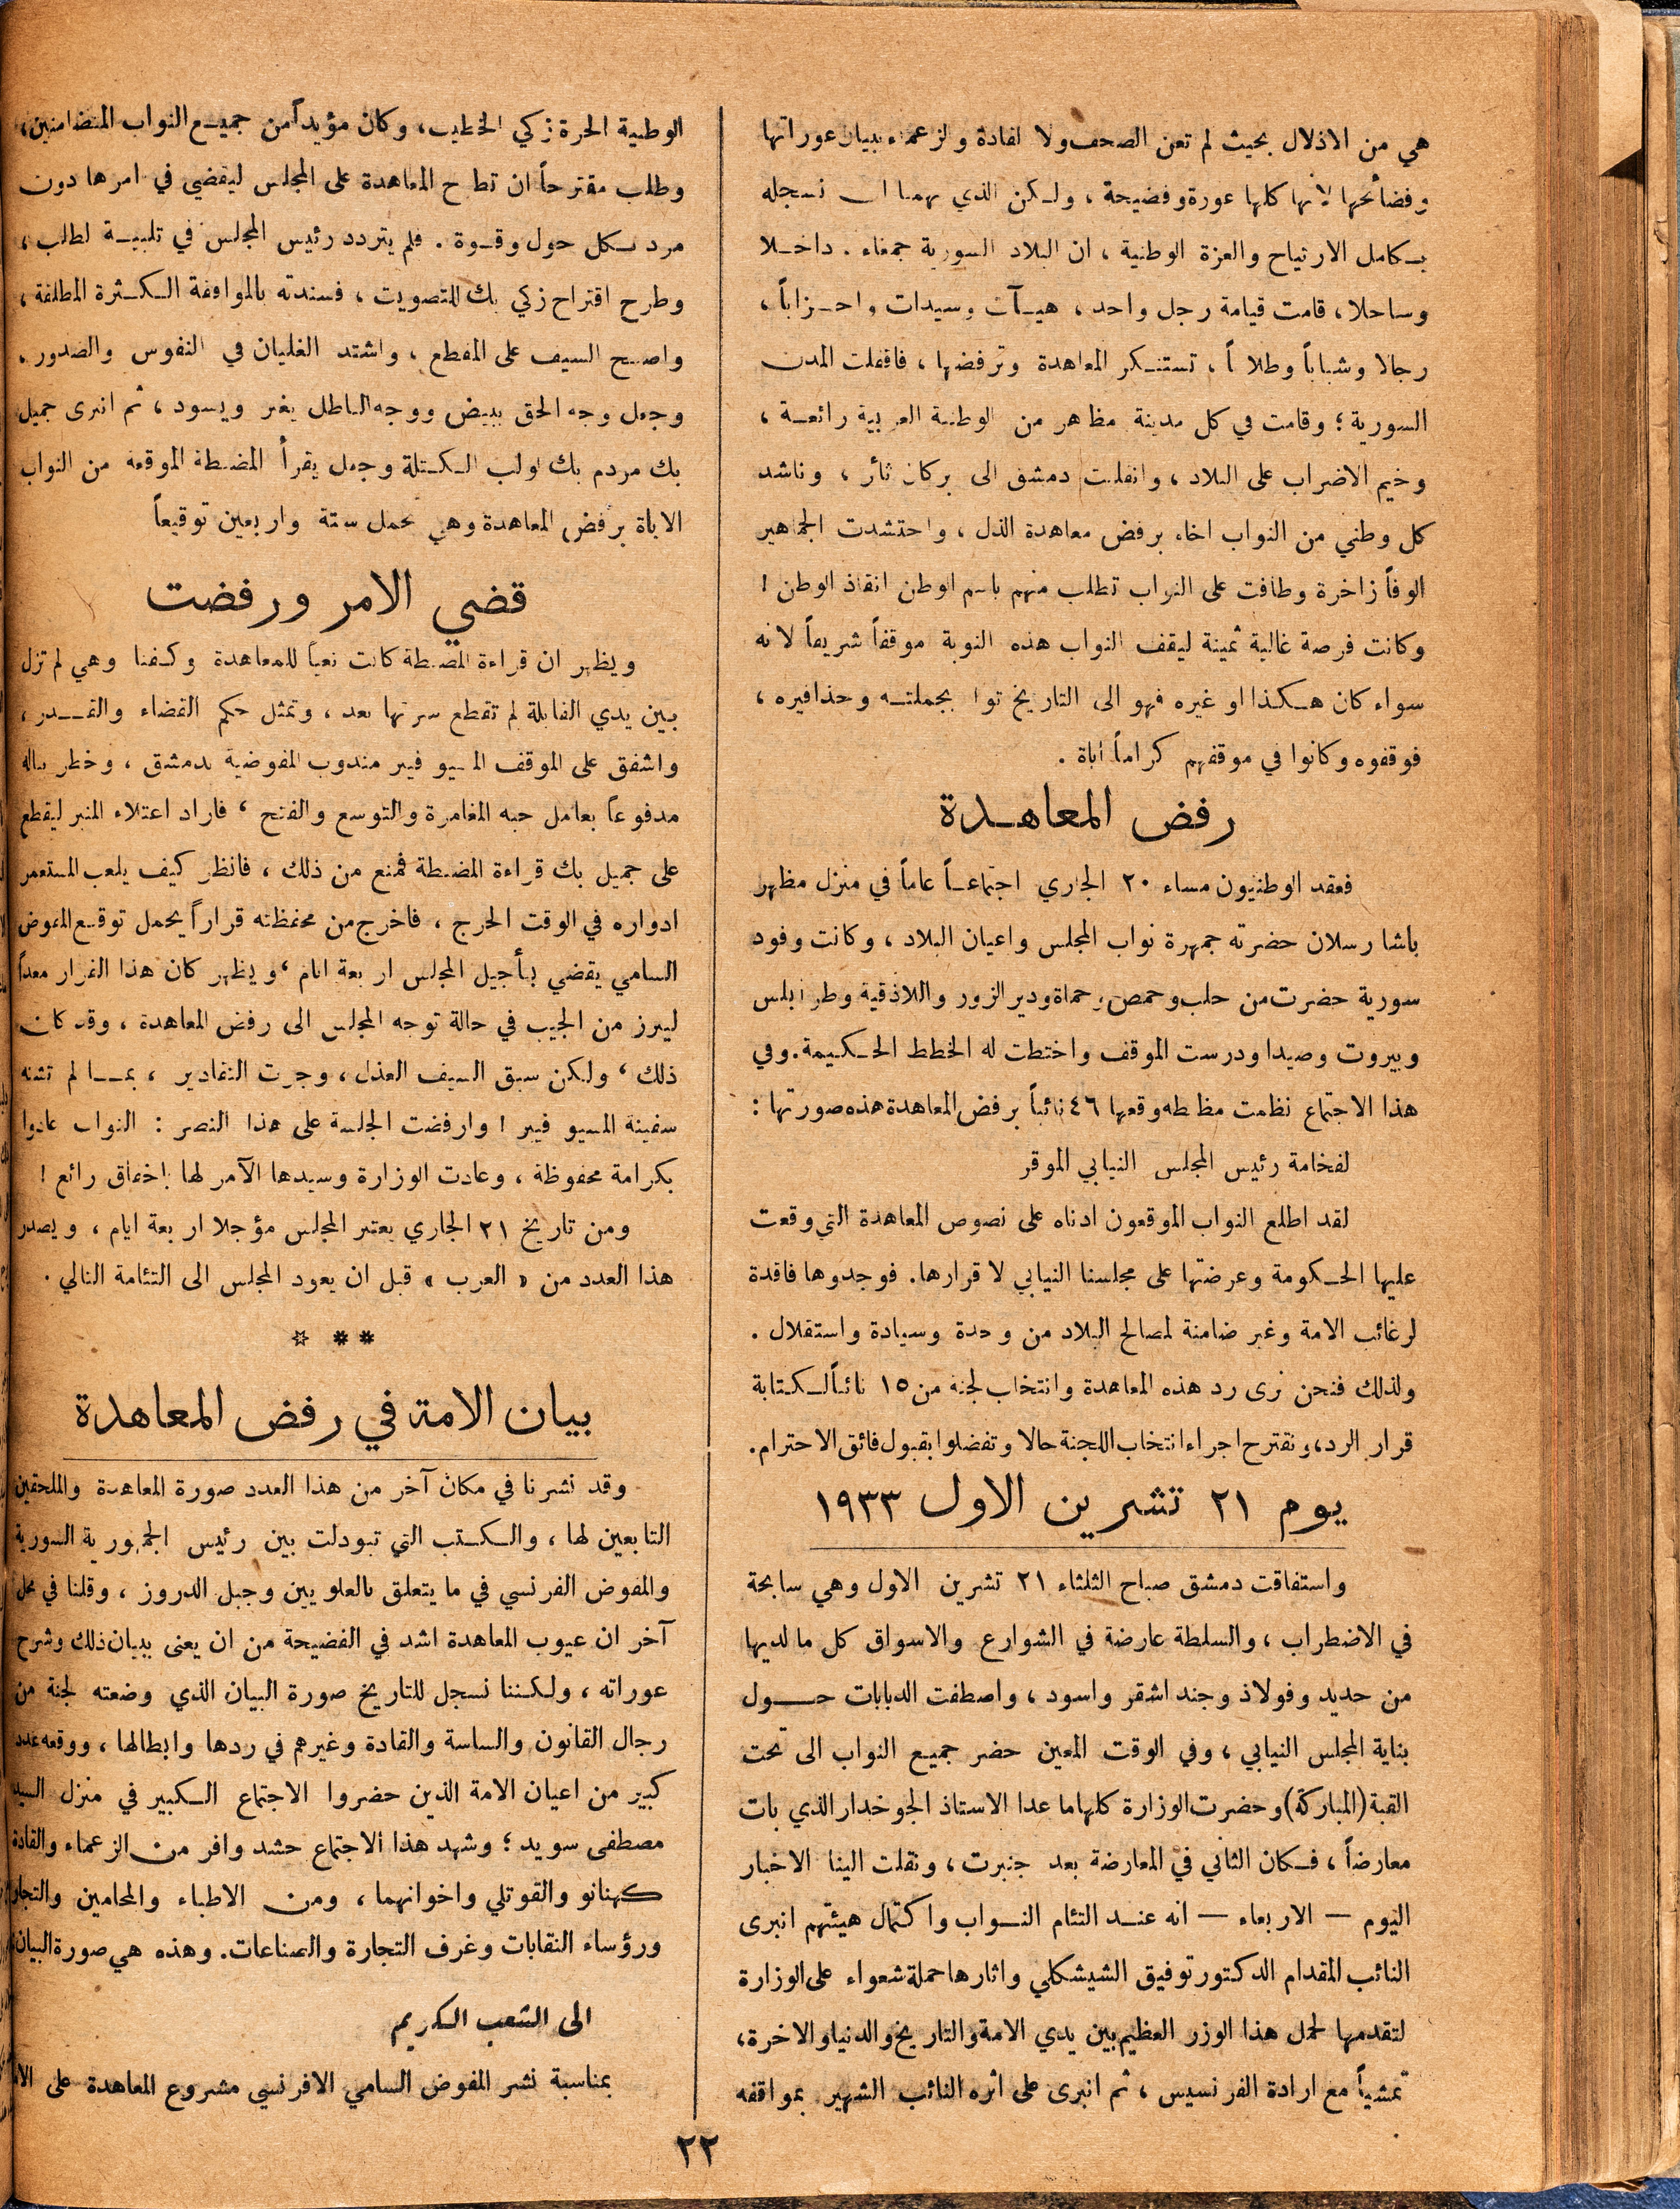 هي من الاذلال بحيث لم تعن الصحف ولا القادة والزعماء ببيان عوراتها
وفضائحها لأنها كلها عورة وفضيحة ، ولكن الذي يهمنا ان نسجله
بكامل الارتياح والعزة الوطنية ، ان البلاد السورية جمعاء . داخلا
وساحلا ، قامت قيامة رجل واحد ، هيآت وسيدات واحزاباً ،
رجالا وشباباً وطلاباً ، تستنكر المعاهدة وترفضها ، فاقفلت المدن
السورية ؛ وقامت في كل مدينة مظاهر من الوطنية العربية رائعة ،
وخيم الاضراب على البلاد ، وانقلبت دمشق الى بركان ثائر ، وناشد
كل وطني من النواب اخاه برفض معاهدة الذل ، واحتشدت الجماهير
الوفاً زاخرة وطافت على النواب تطلب منهم باسم الوطن انقاذ الوطن !
وكانت فرصة غالية ثمينة ليقف النواب هذه النوبة موقفاً شريفاً لانه
سواء كان هكذا او غيره فهو الى التاريخ توا بجملته وحذافيره ،
فوقفوه وكانوا في موقفهم كراماً اباة .
رفض المعاهدة
فعقد الوطنيون مساء ٢٠ الجاري اجتماعاً عاماً في منزل مظهر
باشا رسلان حضرته جمهرة نواب المجلس واعيان البلاد ، وكانت وفود
سورية حضرت من حلب وحمص وحماة ودير الزور واللاذقية وطرابلس
وبيروت وصيدا ودرست الموقف واختطت له الخطط الحكيمة . وفي
هذا الاجتماع نظمت مظبطه وقعها ٤٦ نائباً برفض المعاهدة هذه صورتها :
لفخامة رئيس المجلس النيابي الموقر
لقد اطلع النواب الموقعون ادناه على نصوص المعاهدة التي وقعت
عليها الحكومة وعرضتها على مجلسنا النيابي لاقرارها . فوجدوها فاقدة
لرغائب الامة وغير ضامنة لمصالح البلاد من وحدة وسيادة واستقلال .
ولذلك فنحن نرى رد هذه المعاهدة وانتخاب لجنة من ١٥ نائباً لكتابة
قرار الرد ، ونقترح اجراء انتخاب اللجنة حالا وتفضلوا بقبول فائق الاحترام .
يوم ٢١ تشرين الاول ١٩٣٣
واستفاقت دمشق صباح الثلثاء ٢١ تشرين الاول وهي سابحة
في الاضطراب ، والسلطة عارضة في الشوارع والاسواق كل ما لديها
من حديد وفولاذ وجند اشقر واسود ، واصطفت الدبابات حول
بناية المجلس النيابي ، وفي الوقت المعين حضر جميع النواب الى تحت
القبة (المباركة) وحضرت الوزارة كلها ما عدا الاستاذ الجوخدار الذي بات
معارضاً ، فكان الثاني في المعارضة بعد جنبرت ، ونقلت الينا الاخبار
اليوم — الاربعاء — انه عند التئام النواب واكتمال هيئتهم انبرى
النائب المقدام الدكتور توفيق الشيشكلي واثارها حملة شعواء على الوزارة
لتقدمها لحمل هذا الوزر العظيم بين يدي الامة والتاريخ والدنيا والاخرة ،
تمشياً مع ارادة الفرنسيس ، ثم انبرى على اثره النائب الشهير بمواقفه
الوطنية الحرة زكي الخطيب ، وكان مؤيداً من جميع النواب المتضامنين ،
وطلب مقترحاً ان تطرح المعاهدة على المجلس ليقضي في امرها دون
مرد بكل حول وقوة . فلم يتردد رئيس المجلس في تلبية الطلب ،
وطرح اقتراح زكي بك للتصويت ، فسندته بالموافقة الكثرة المطلقة ،
واصبح السيف على المقطع ، واشتد الغليان في النفوس والصدور .
وجعل وجه الحق يبيض ووجه الباطل يغبر ويسود ، ثم انبرى جميل
بك مردم بك لولب الكتلة وجعل يقرأ المضبطة الموقعة من النواب
الاباة برفض المعاهدة وهي تحمل ستة واربعين توقيعاً
قضي الامر ورفضت
ويظهر ان قراءة المضبطة كانت نعياً للمعاهدة وكفنا وهي لم تزل
بين يدي القابلة لم تقطع سرتها بعد ، وتمثل حكم القضاء والقدر ،
واشفق على الموقف المسيو فيبر مندوب المفوضية بدمشق ، وخطر بباله
مدفوعاً بعامل حبه المغامرة والتوسع والفتح ، فاراد اعتلاء المنبر ليقطع
على جميل بك قراءة المضبطة فمنع من ذلك ، فانظر كيف يلعب المستعمر
ادواره في الوقت الحرج ، فاخرج من محفظته قراراً يحمل توقيع المفوض
السامي يقضي بتأجيل المجلس اربعة ايام ، ويظهر كان هذا القرار معداً
ليبرز من الجيب في حالة توجه المجلس الى رفض المعاهدة ، وقد كان
ذلك ، ولكن سبق السيف العذل ، وجرت التقادير ، بما لم تشته
سفينة المسيو فيبر ! وارفضت الجلسة على هذا النصر : النواب عادوا
بكرامة محفوظة ، وعادت الوزارة وسيدها الآمر لها باخفاق رائع !
ومن تاريخ ٢١ الجاري يعتبر المجلس مؤجلا اربعة ايام ، ويصدر
هذا العدد من « العرب » قبل ان يعود المجلس الى التئامة التالي .
* * *
بيان الامة في رفض المعاهدة
وقد نشرنا في مكان آخر من هذا العدد صورة المعاهدة والملحقين
التابعين لها ، والكتب التي تبودلت بين رئيس الجمهورية السورية
والمفوض الفرنسي في ما يتعلق بالعلويين وجبل الدروز ، وقلنا في محل
آخر ان عيوب المعاهدة اشد في الفضيحة من ان يعنى ببيان ذلك وشرح
عوراته ، ولكننا نسجل للتاريخ صورة البيان الذي وضعته لجنة من
رجال القانون والساسة والقادة وغيرهم في ردها وابطالها ، ووقعه عدد
كبير من اعيان الامة الذين حضروا الاجتماع الكبير في منزل السيد
مصطفى سويد ؛ وشهد هذا الاجتماع حشد وافر من الزعماء والقادة
كهنانو والقوتلي واخوانهما ، ومن الاطباء والمحامين والتجار
ورؤساء النقابات وغرف التجارة والصناعات . وهذه هي صورة البيان
الى الشعب الكريم
بمناسبة نشر المفوض السامي الافرنسي مشروع المعاهدة على
٢٢